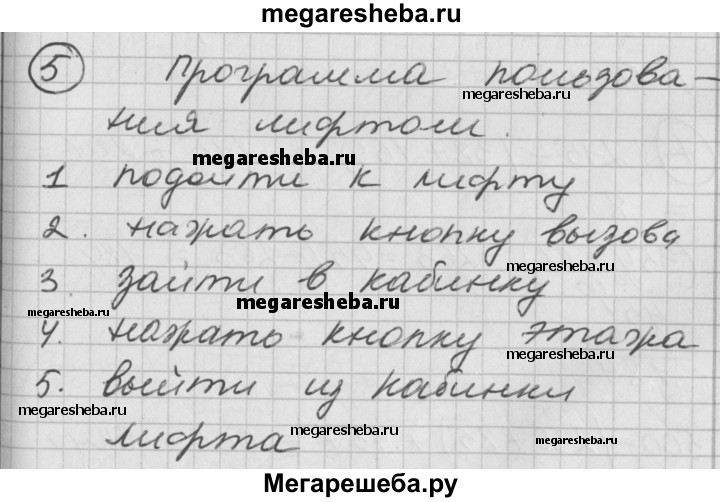 megaresheba.ru
5 Программа пользова-
megaresheba.ru
ния лифтом.
megaresheba.ru
1 подойти к лифту
2. нажать кнопку вызова
megaresheba.ru
3. зайти в кабинку
megaresheba.ru
megaresheba.ru
4. нажать кнопку этажа
megaresheba.ru
5. выйти из кабинки
megaresheba.ru
лифта
megaresheba.ru
megaresheba.ru
Мегарешеба.ру